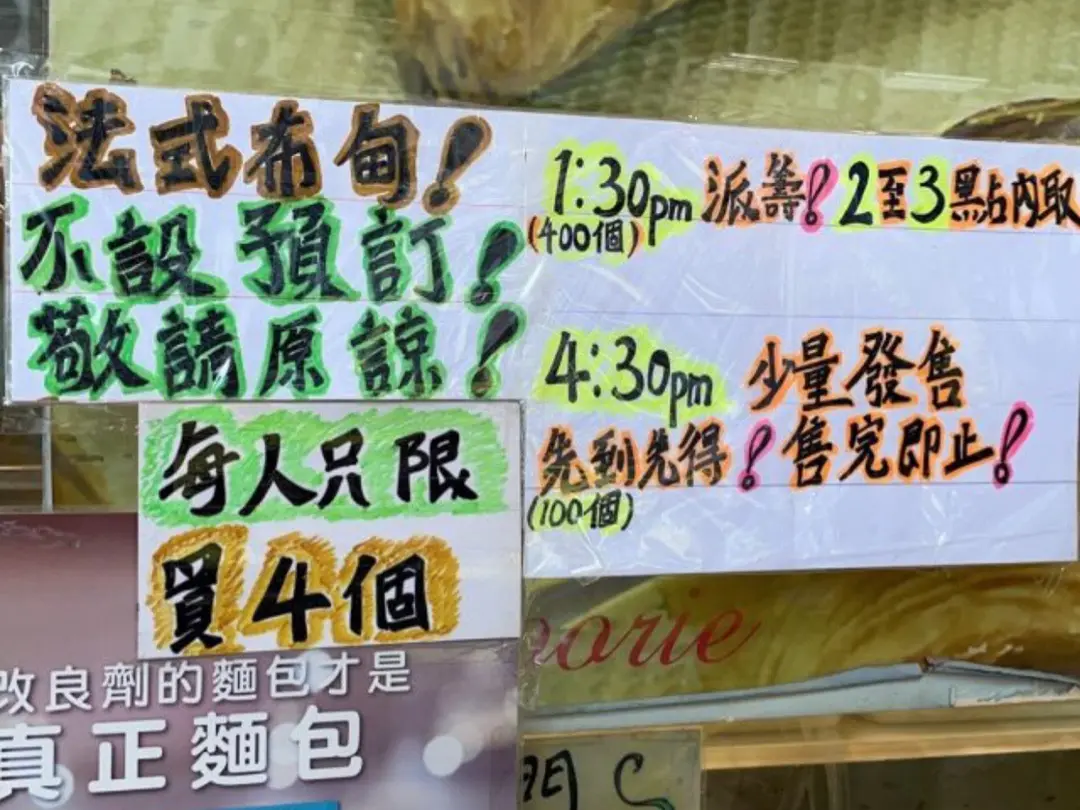 法式布甸!
不設預訂!
敬請原諒!
每人只限
買4個
1:30pm 派籌! 2至3點內取
(400個)
4:30pm 少量發售
先到先得! 售完即止!
(100個)
改良劑的麵包才是
真正麵包